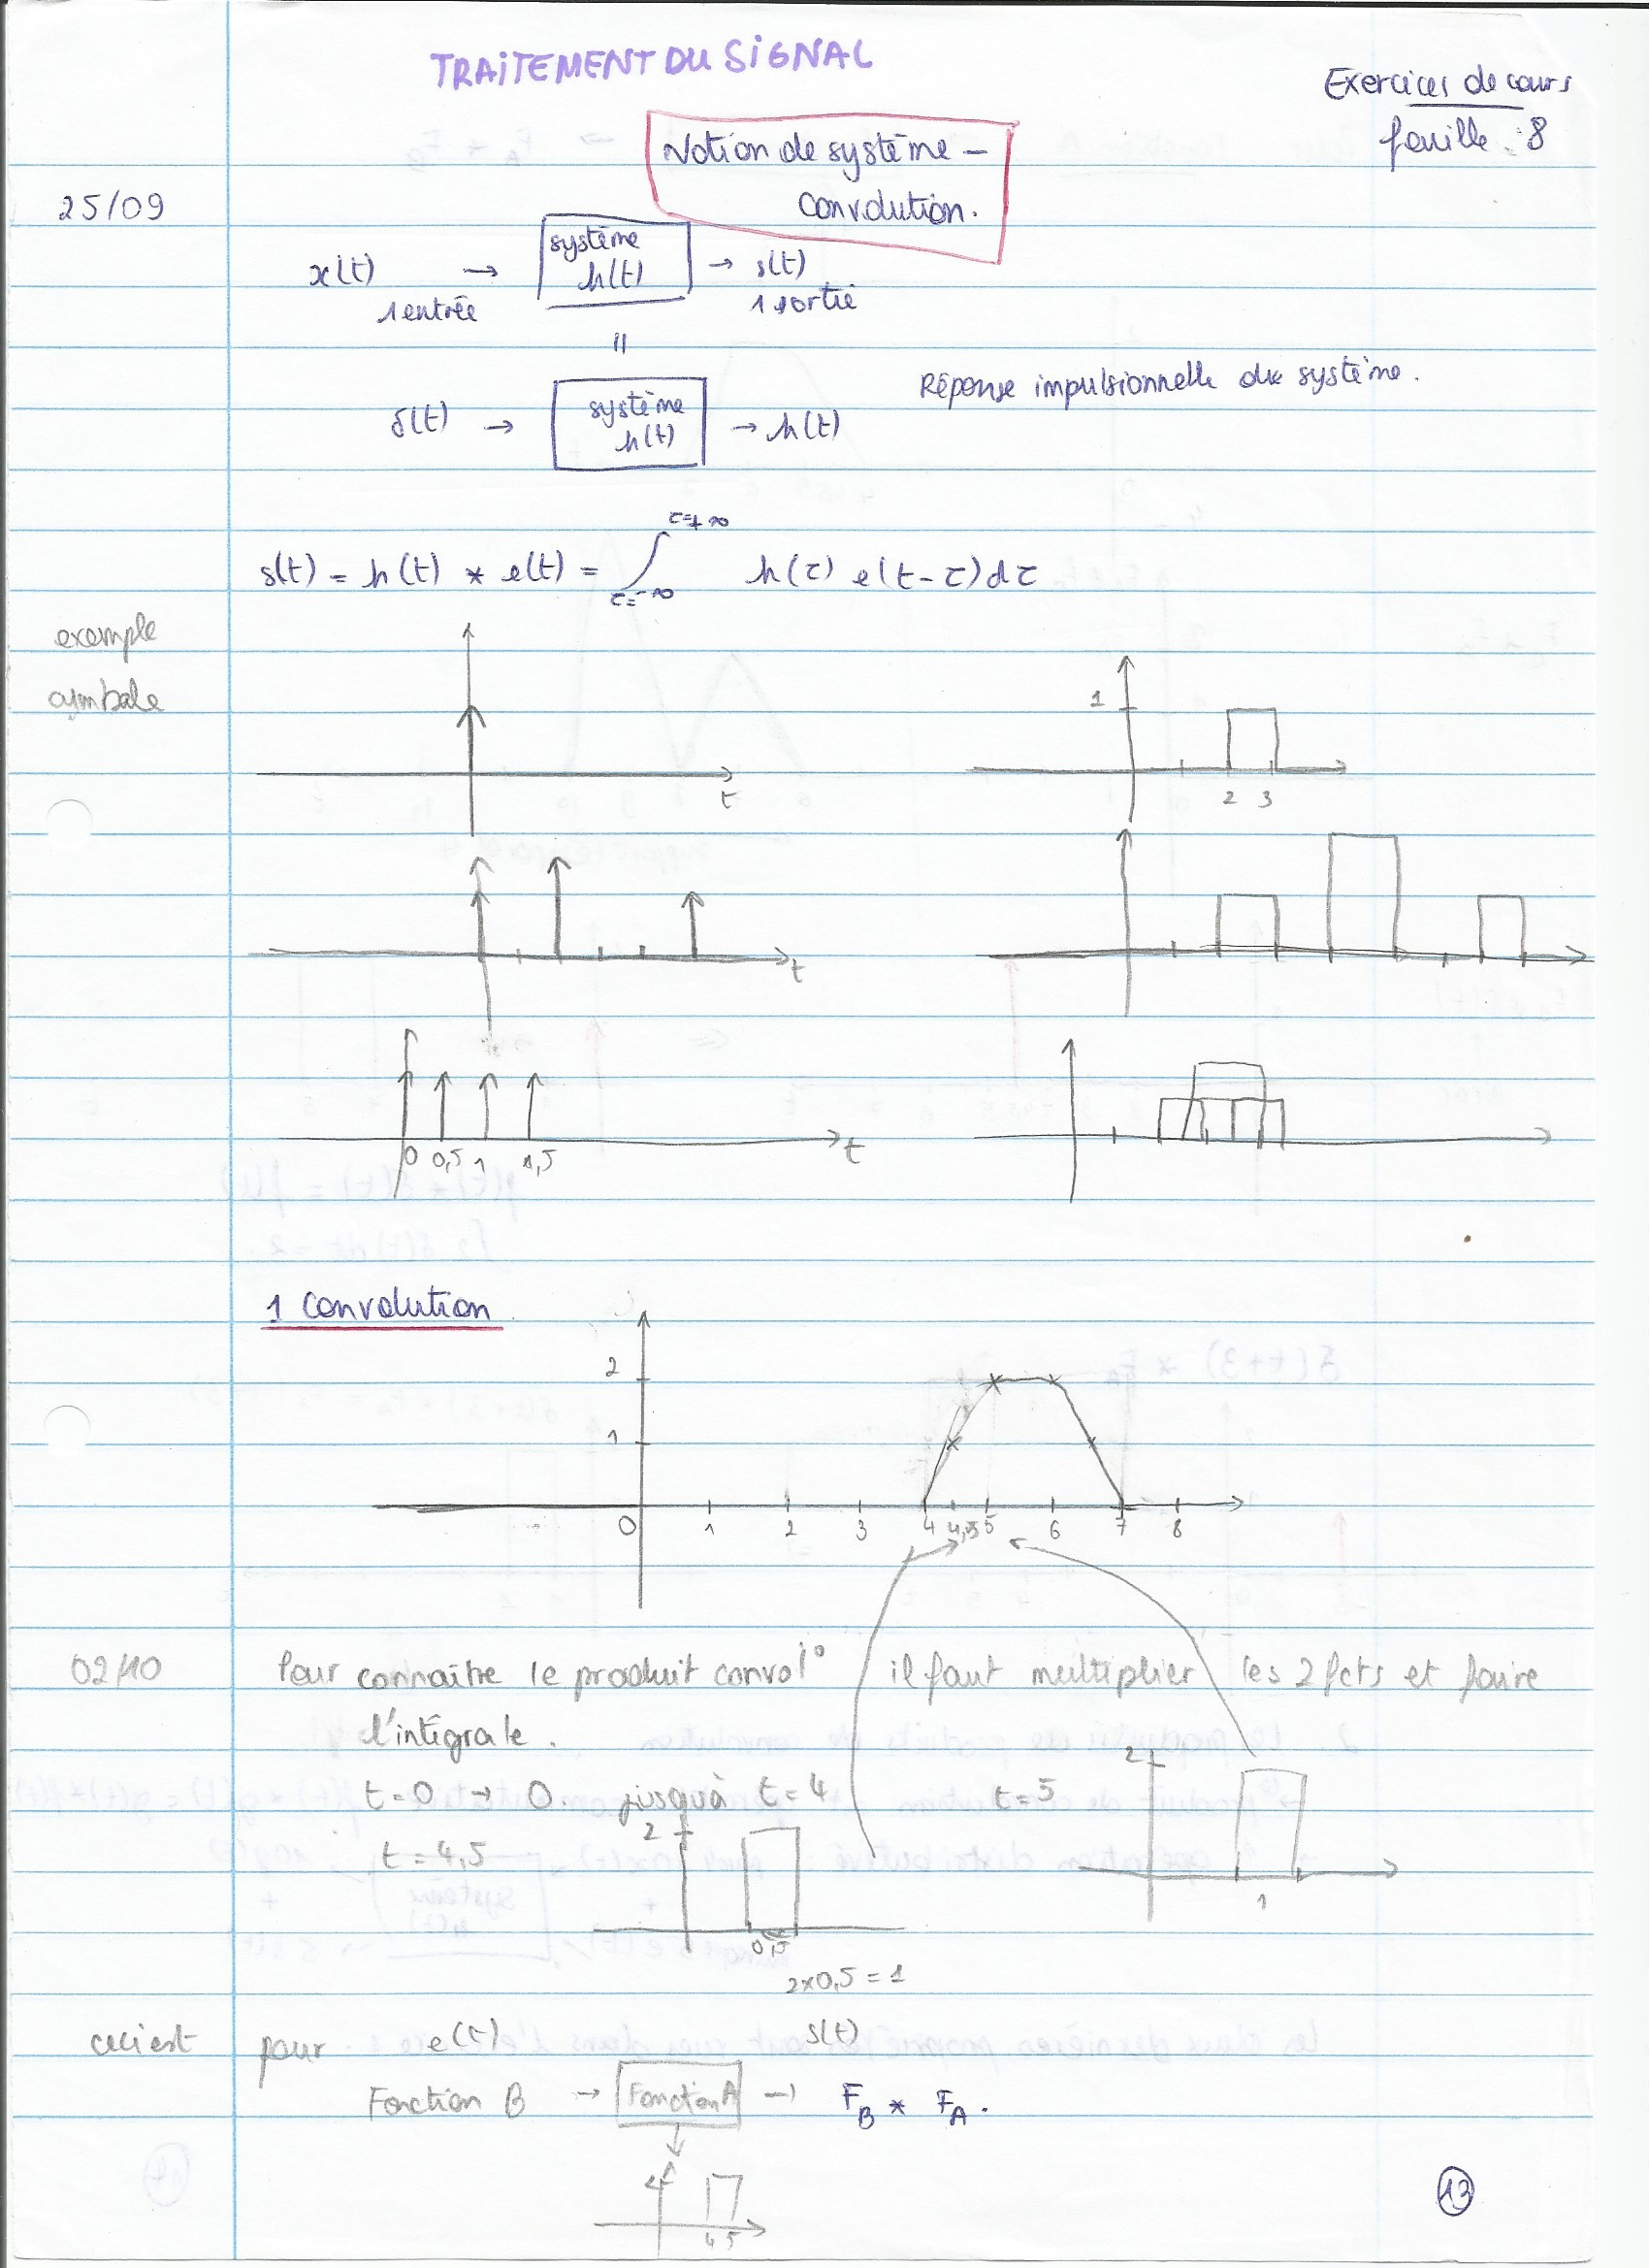 TRAITEMENT DU SIGNAL
Exercices de cours
feuille : 8
Notion de système -
Convolution.
25/09
x(t) → système h(t) → s(t)
1 entrée 1 sortie
=
δ(t) → système h(t) → h(t)
Réponse impulsionnelle du système.
s(t) = h(t) * e(t) = ∫ τ=-∞ τ=+∞ h(τ) e(t-τ) dτ
exemple
cymbale
t
1
2 3
t
0 0,5 1 1,5 t
1 Convolution
2
1
0 1 2 3 4 4,5 5 6 7 8
02/10 Pour connaître le produit convol° il faut multiplier les 2 fcts et faire
l'intégrale.
t=0 → 0. jusqu'à t=4 t=5
2
t=4,5 2
0,5 1
2x0,5 = 1
ceci est pour e(t) s(t)
Fonction B → Fonction A → F_B * F_A.
2
4 5
13